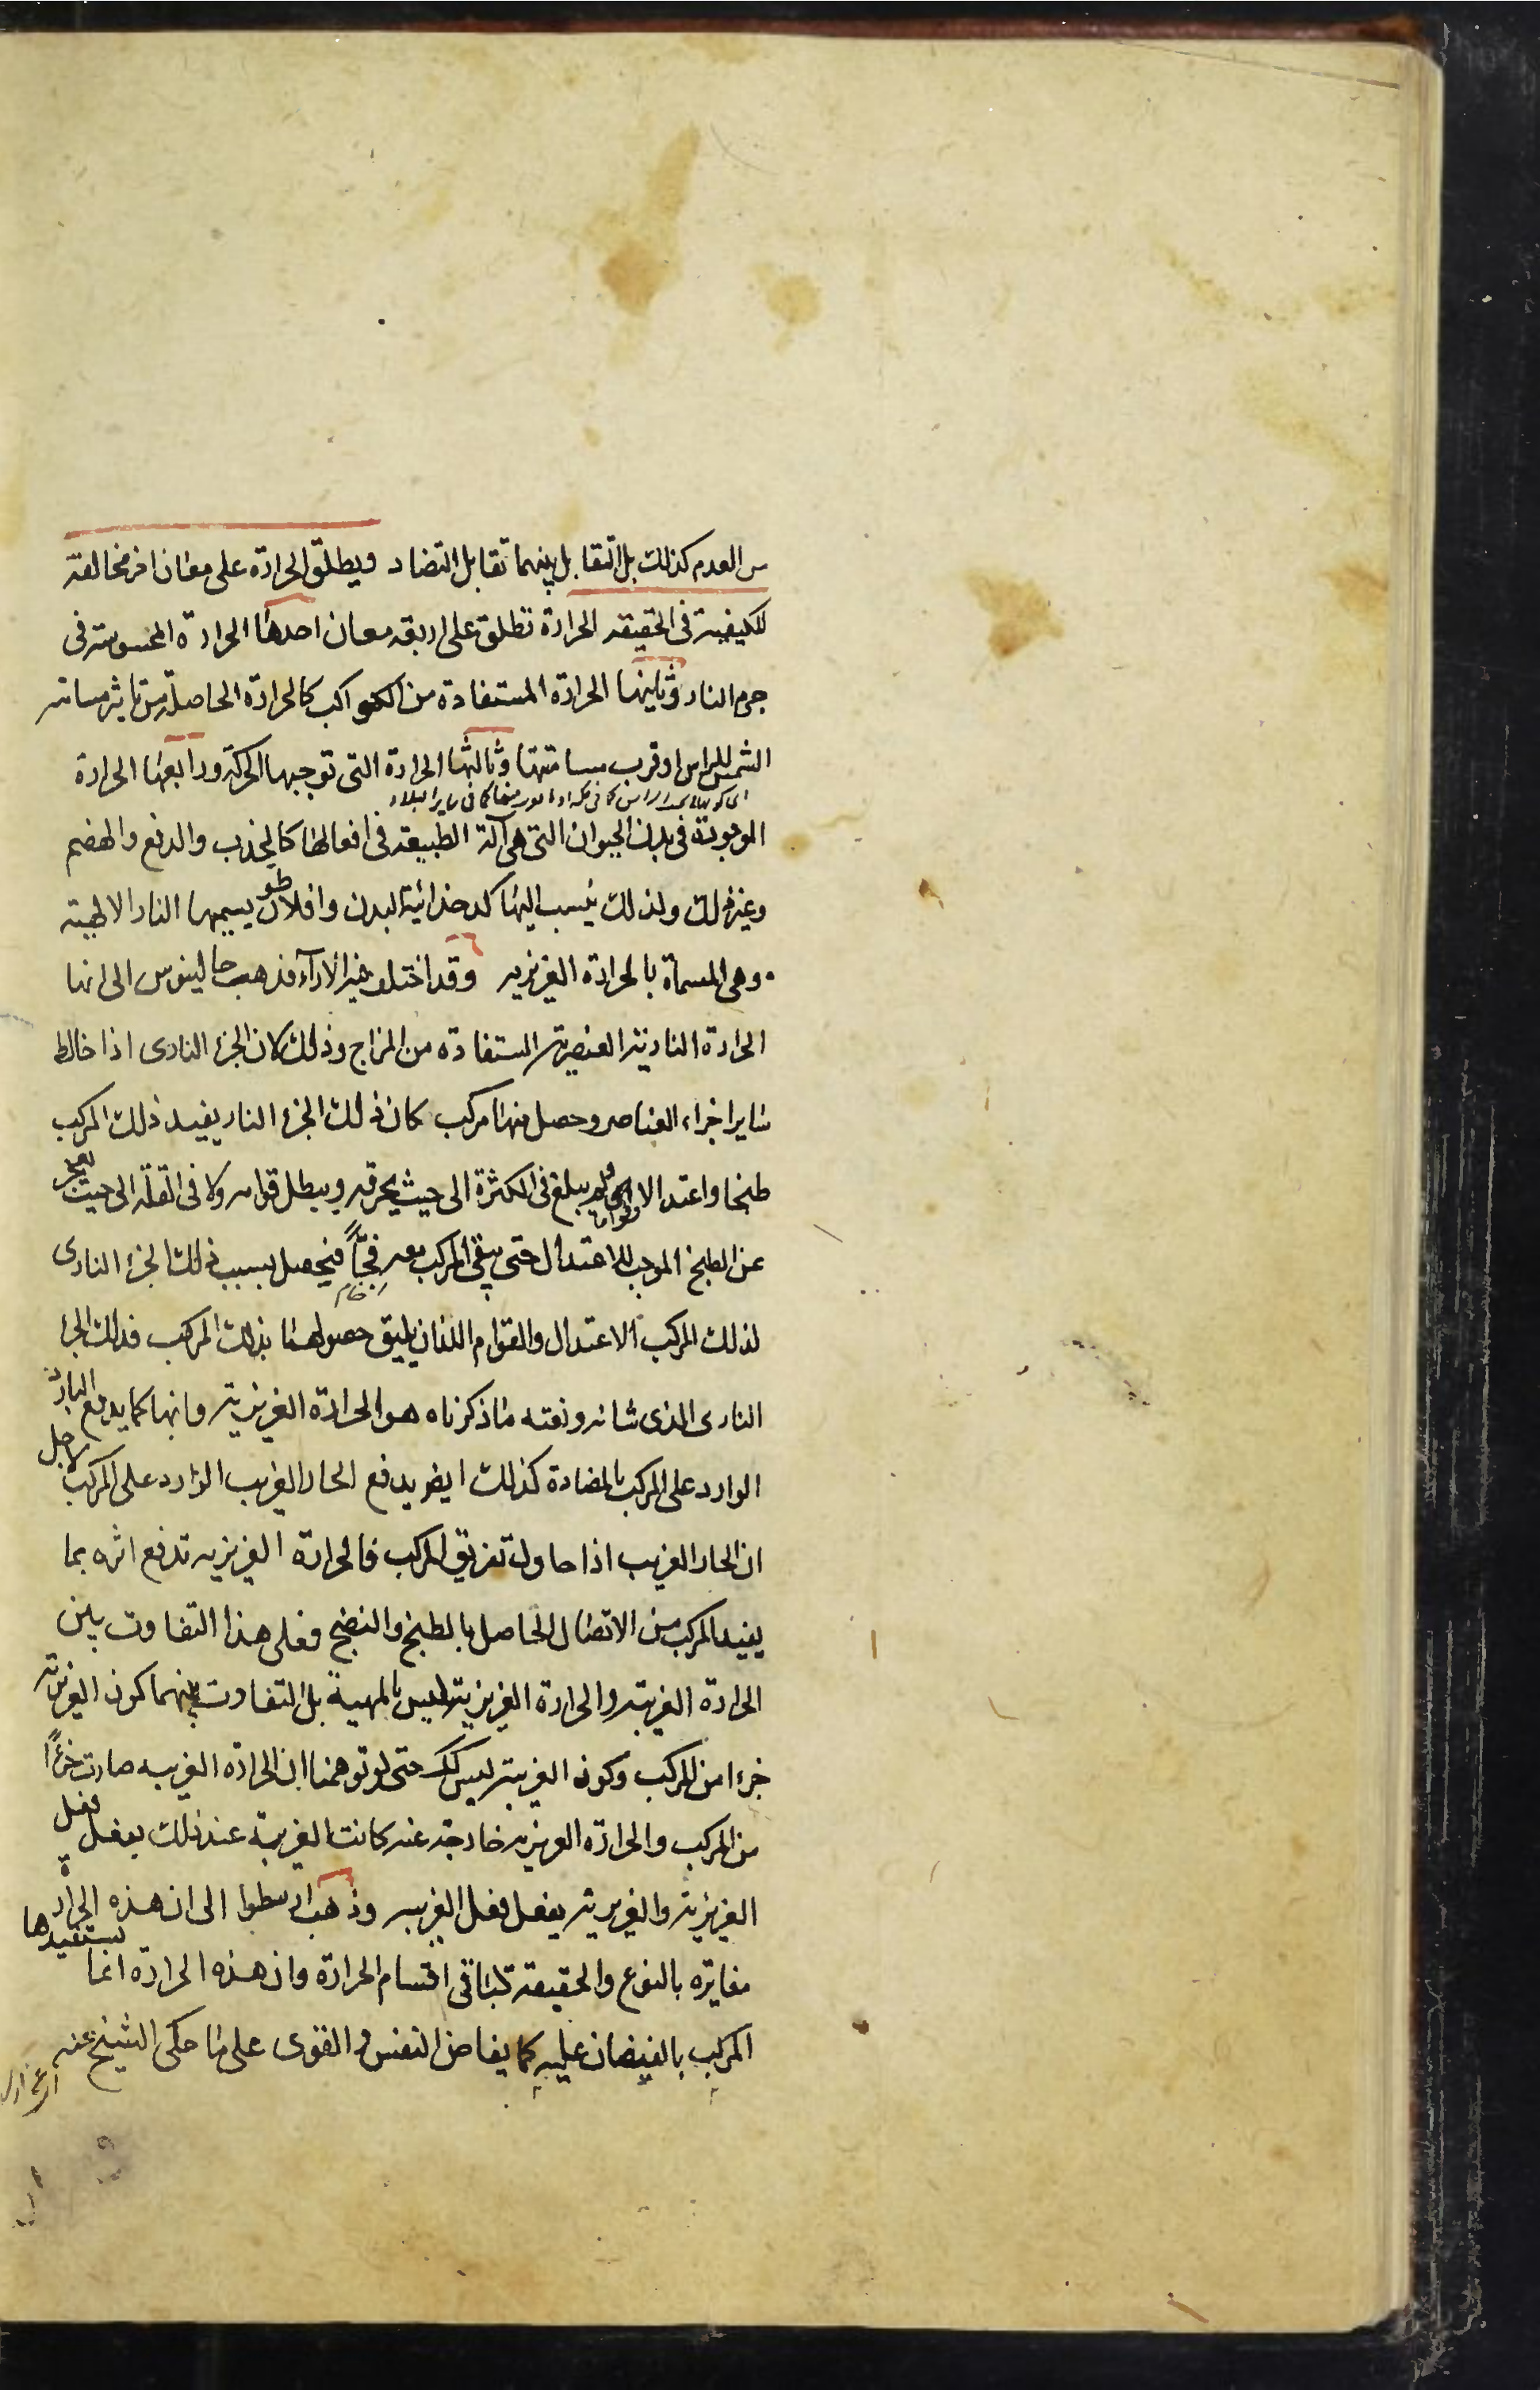 س العدم كذلك بل التقابل بينهما تقابل التضاد ويطلق الحرارة على معان اخر مخالفة
للكيفية في الحقيقه الحرارة تطلق على اربعة معان احدها الحرارة المحسوسة في
جرم النار وثانيها الحرارة المستفادة من الكواكب كالحرارة الحاصلة من تاثير مسامتة
الشمس للراس او قرب مسامتتها وثالثها الحرارة التي توجبها الحركة ورابعها الحرارة
كما في ساير البلاد
الموجودة في بدن الحيوان التي هي آلة الطبيعة في افعالها كالجذب والدفع والهضم
وغير ذلك ولذلك ينسب اليها كدخدائية البدن وافلاطون يسميها النار الالهية
وهي المسماة بالحرارة الغريزيه وقد اختلف فيه الاراء فذهب جالينوس الى انها
الحرارة النارية العنصرية المستفادة من المزاج وذلك لان الجزء النارى اذا خالط
ساير اجزاء العناصر وحصل منها مركب كان ذلك الجزء النار يفيد ذلك المركب
طبخا واعتدالا وقواما ولم يبلغ في الكثرة الى حيث يحرقه ويبطل قوامه ولا في القلة الى حيث يعجز
عن الطبخ الموجب للاعتدال حتى يبقى المركب معه فجّاً فيحصل بسبب ذلك الجزء النارى
خام
لذلك المركب الاعتدال والقوام اللذان يليق حصولهما بذلك المركب فذلك الجزء
النارى الذى شانه ونعته ما ذكرناه هو الحرارة الغريزية وانها كما يدفع البارد
الوارد على المركب بالمضادة كذلك ايضا يدفع الحار الغريب الوارد على المركب لاجل
ان الحار الغريب اذا حاول تفريق المركب فالحرارة الغريزيه تدفع اثره بما
يفيد المركب من الاتصال الحاصل بالطبخ والنضج فعلى هذا التفاوت بين
الحرارة الغريبة والحرارة الغريزية ليس بالمهية بل التفاوت بينهما كون الغريزية
جزءا من المركب وكون الغريبة ليس كك حتى لو توهمنا ان الحرارة الغريبه صارت جزءاً
من المركب والحرارة الغريزيه خارجة عنه كانت الغريبة عند ذلك يفعل فعل
الغريزية والغريزية يفعل فعل الغريبه وذهب ارسطوا الى ان هذه الحرارة
مغايرة بالنوع والحقيقة لباقي اقسام الحرارة وان هذه الحرارة انما يستفيدها
المركب بالفيضان عليه كما يفاض النفس والقوى على ما حكى الشيخ عنه